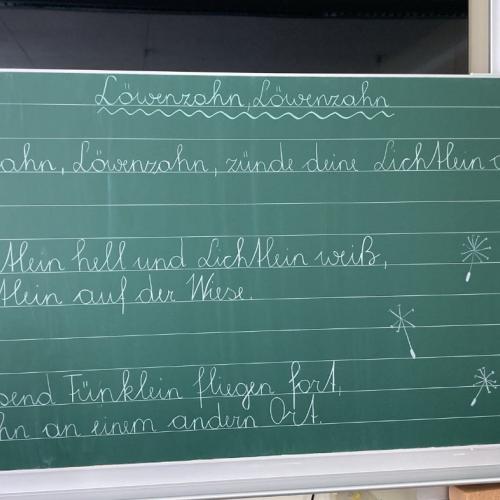 Löwenzahn, Löwenzahn
ahn, Löwenzahn, zünde deine Lichtlein
tlein hell und Lichtlein weiß,
tlein auf der Wiese.
send Fünklein fliegen fort,
hn an einem andern Ort.